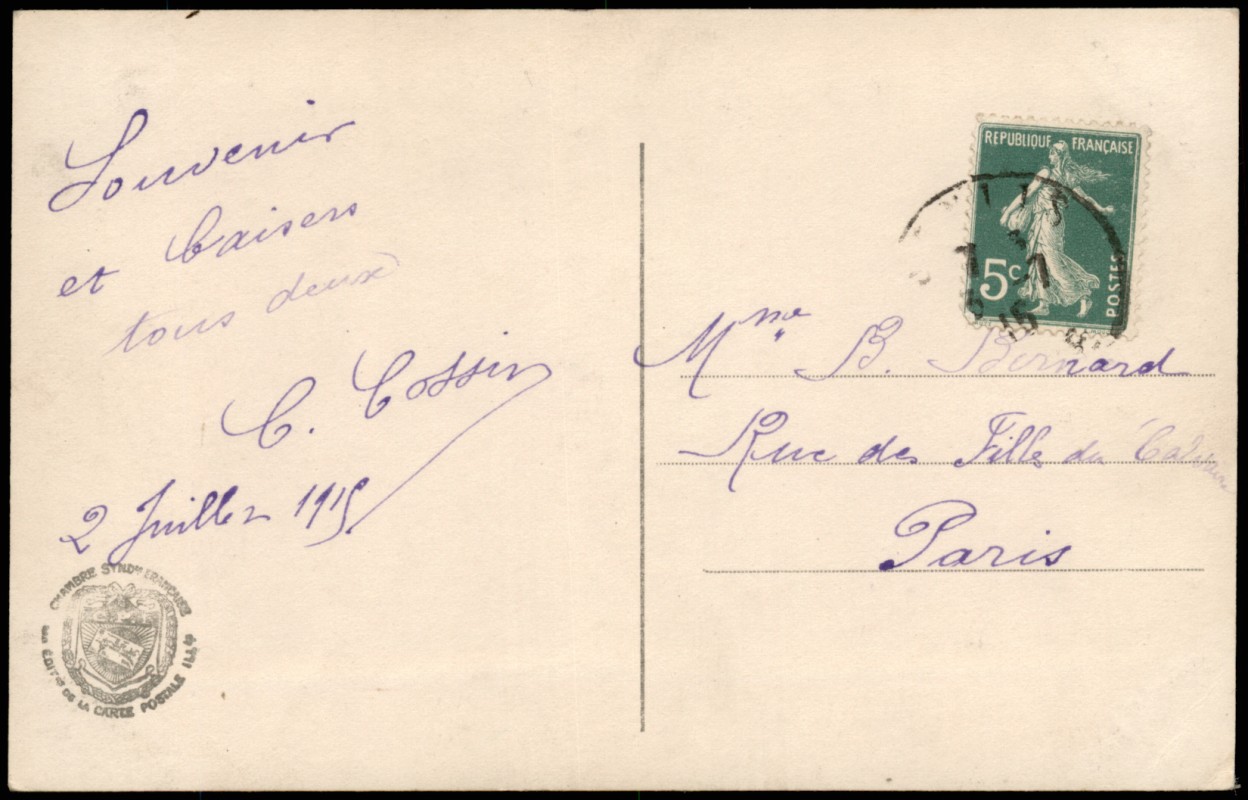 Souvenir
et baisers
tous deux
C. Cossin
2 Juillet 1915
CHAMBRE SYND^le FRANÇAISE
ÉDIT^rs DE LA CARTE POSTALE ILL^ée
REPUBLIQUE FRANÇAISE
5^c
POSTES
7
5 -7
15
M^me B. Bernard
Rue des Filles du Calvaire
Paris